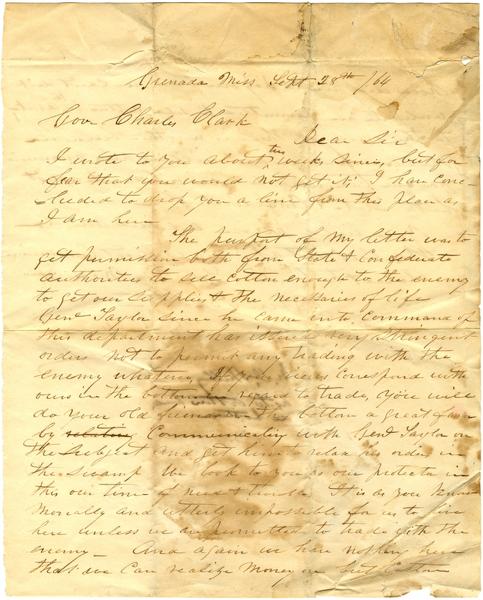 Grenada Miss Sept 28th /64
Gov Charles Clark
Dear Sir
I wrote to you about two weeks since, but for
fear that you would not get it, I have con-
cluded to drop you a line from this place as
I am here
The purport of my letter was to
get permission both from State & Confederate
Authorities to sell Cotton enough to the enemy
to get our supplies & the necessaries of life
Genl Taylor since he came into command of
this department has issued very stringent
orders not to permit any trading with the
enemy whatever, If your views correspond with
ours in the bottom in regard to trade, you will
do your old friends in the bottom a great favor
by Communicating with Genl Taylor on
the subject and get him to relax his order in
the swamp We look to you as our protector in
this our time of need & trouble It is as you know
morally and utterly impossible for us to live
here unless we are permitted to trade with the
enemy – And again we have nothing here
that we can realize money on but Cotton